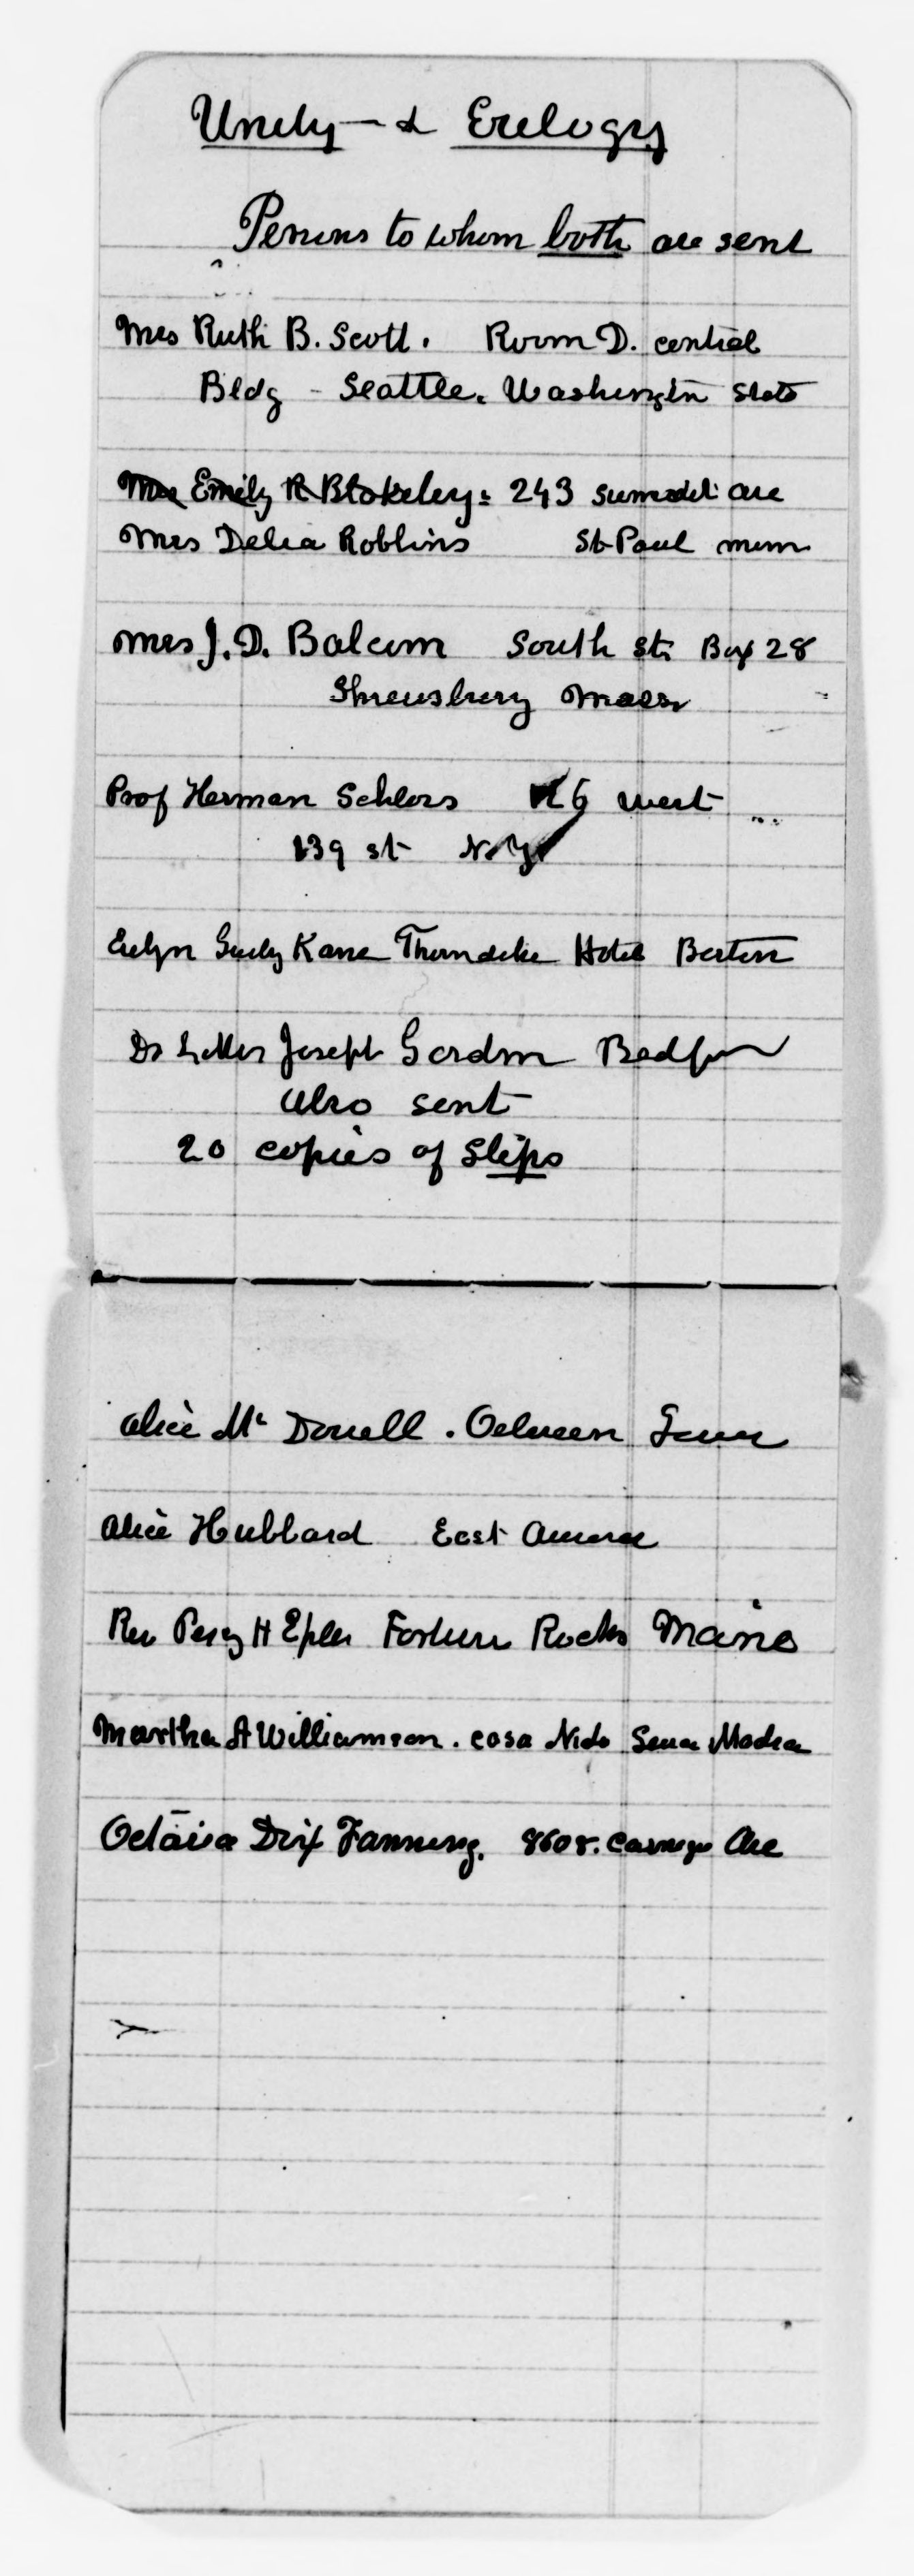 Unity & Eulogy
Persons to whom both are sent
Mrs Ruth B. Scott. Room D. central
Bldg - Seattle. Washington State
Emily R Blakeley 243 Summit Ave
Mrs Delia Robbins St Paul Minn
Mrs J. D. Balcom South St. Box 28
Shrewsbury Mass
Prof Herman Schlors West
139 st N.Y.
Evelyn Kane Thorndike Hotel Boston
Dr Joseph Gordon Bedford
also sent
20 copies of Slips
Alice Mc Donell. Oelwein Iowa
Alice Hubbard East Aurora
Rev Percy H Epler Fortune Rocks Maine
Martha A Williamson. Casa Nido Sierra Madre
Octavia Dix Fanning. 8608. Carnegie Ave